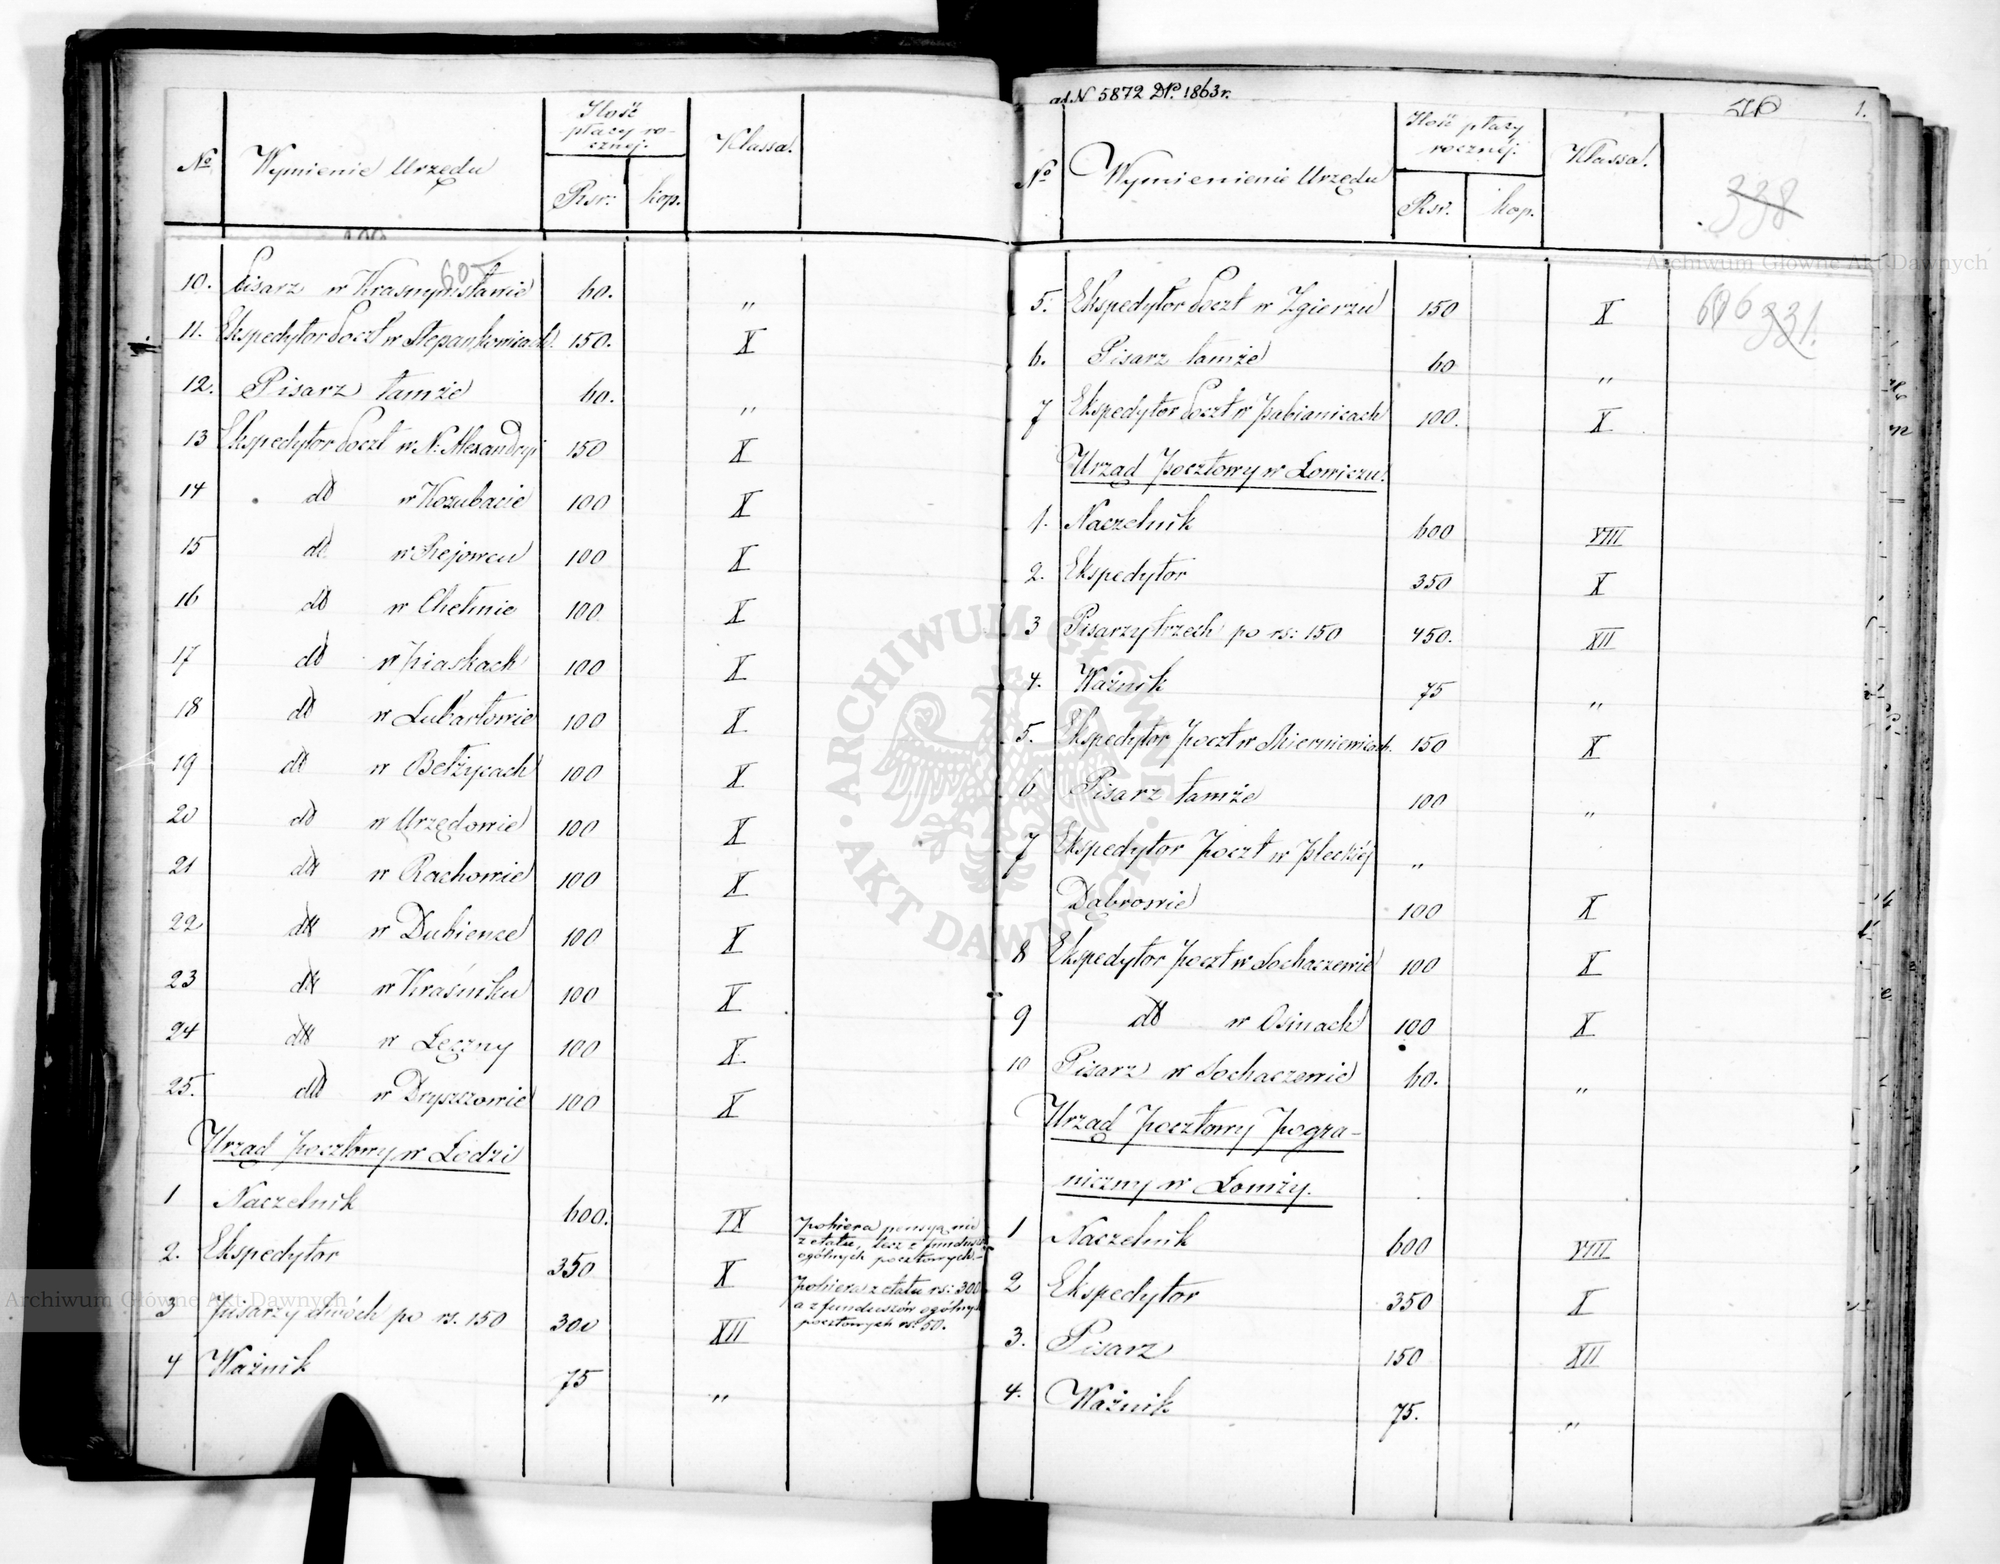 № Wymienie Urzędu Ilość płacy rocznéj. Klassa.
Rsr: kop.
10. Pisarz w Krasnymstawie 60. "
60
11. Ekspedytor Poczt w Stepankowicach. 150. X
12. Pisarz tamże 60. "
13 Ekspedytor Poczt w N: Alexandryi 150 X
14 dt w Kozubacie 100 X
15 dt w Rejowcu 100 X
16 dt w Chełmie 100 X
17 dt w Piaskach 100 X
18 dt w Lubartowie 100 X
19 dt w Bełżycach 100 X
20 dt w Urzędowie 100 X
21 dt w Rachowie 100 X
22 dt w Dubience 100 X
23 dt w Kraśniku 100 X
24 dt w Łęczny 100 X
25. dt w Dryszczowie 100 X
Urząd Pocztowy w Łodzi
1 Naczelnik 600. IX pobiera pensyą nie
z etatu, lecz z fundusz
ogólnych pocztowych.
2. Ekspedytor 350 X pobiera z etatu rs: 300
a z funduszów ogólnych
pocztowych rs. 50.
3 Pisarzy dwóch po rs. 150 300 XII
4 Ważnik 75 "
ad N 5872 DP. 1863 r.
1.
№ Wymienienie Urzędu Ilość płacy rocznéj. Klassa.
Rsr. kop.
338
5. Ekspedytor Poczt w Zgierzu 150 X
331.
6. Pisarz tamże 60 "
7 Ekspedytor Poczt w Pabianicach 100. X
Urząd Pocztowy w Łowiczu.
1. Naczelnik 600 VIII
2. Ekspedytor 350 X
3 Pisarzy trzech po rs: 150 450. XII
4. Ważnik 75 "
5. Ekspedytor Poczt w Skierniewicach. 150 X
6 Pisarz tamże 100 "
7 Ekspedytor Poczt w Pleckiéj "
Dąbrowie 100 X
8 Ekspedytor Poczt w Sochaczewie 100 X
9 dt w Osinach 100 X
10 Pisarz w Sochaczewie 60. "
Urząd Pocztowy Pogra-
niczny w Łomży.
1 Naczelnik 600 VIII
2 Ekspedytor 350 X
3. Pisarz 150 XII
4. Ważnik 75. "
Archiwum Główne Akt Dawnych
Archiwum Główne Akt Dawnych
ARCHIWUM GŁÓWNE AKT DAWNYCH